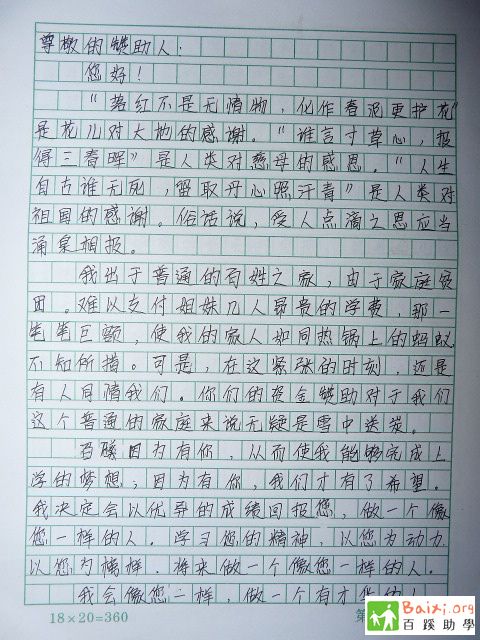 尊敬的赞助人:
您好!
"落红不是无情物,化作春泥更护花"
是花儿对大地的感谢。"谁言寸草心,报
得三春晖"是人类对慈母的感恩。"人生
自古谁无死,留取丹心照汗青"是人类对
祖国的感谢。俗话说,受人点滴之恩应当
涌泉相报。
我出于普通的百姓之家,由于家庭贫
困。难以支付姐妹几人昂贵的学费,那一
笔笔巨额,使我的家人如同热锅上的蚂蚁
不知所措。可是,在这紧张的时刻,还是
有人同情我们。你们的资金赞助对于我们
这个普通的家庭来说无疑是雪中送炭。
因为有你,从而使我能够完成上
学的梦想;因为有你,我们才有了希望。
我决定会以优异的成绩回报您,做一个像
您一样的人。学习您的精神,以您为动力
以您为榜样,将来做一个像您一样的人。
我会像您一样,做一个有才华的人
18×20=360
第
Baixi.org
百蹊助學